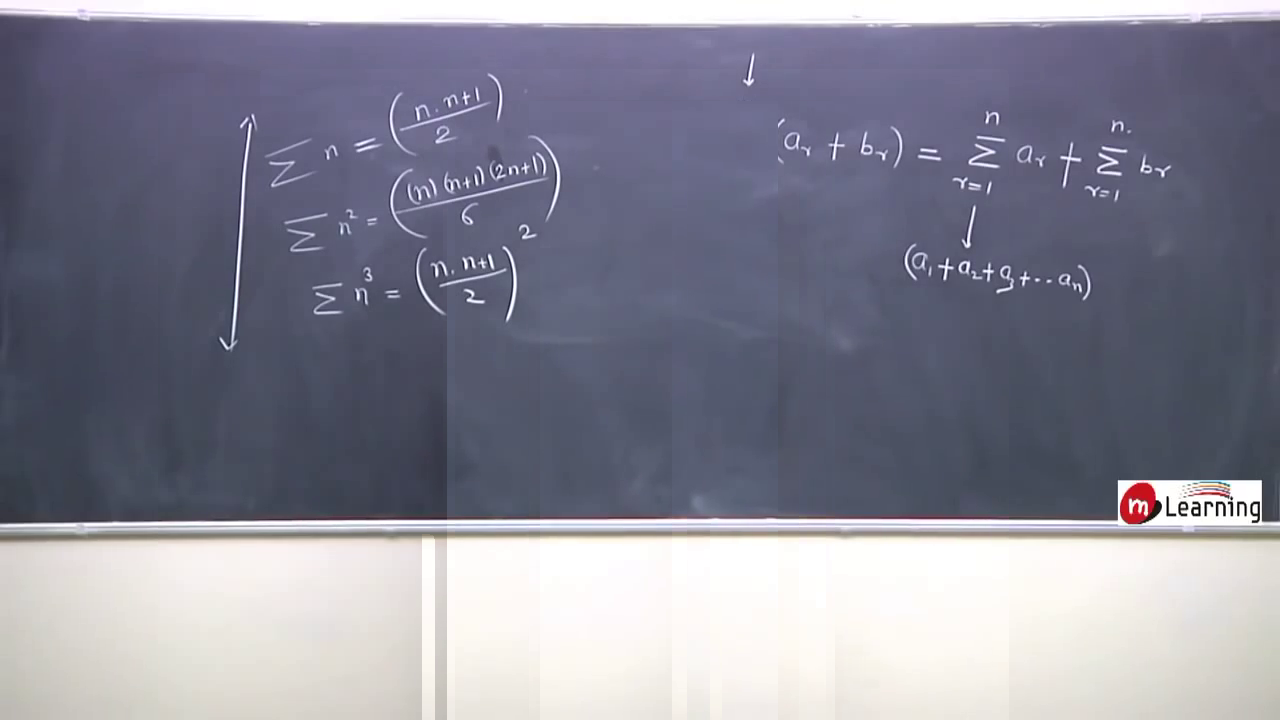 ∑ n = (n. n+1 / 2)
∑ n² = ((n) (n+1) (2n+1) / 6)
∑ n³ = (n. n+1 / 2)²
↓
(aᵣ + bᵣ) = ∑ⁿᵣ₌₁ aᵣ + ∑ⁿ·ᵣ₌₁ bᵣ
↓
(a₁ + a₂ + a₃ + ·· aₙ)
m Learning